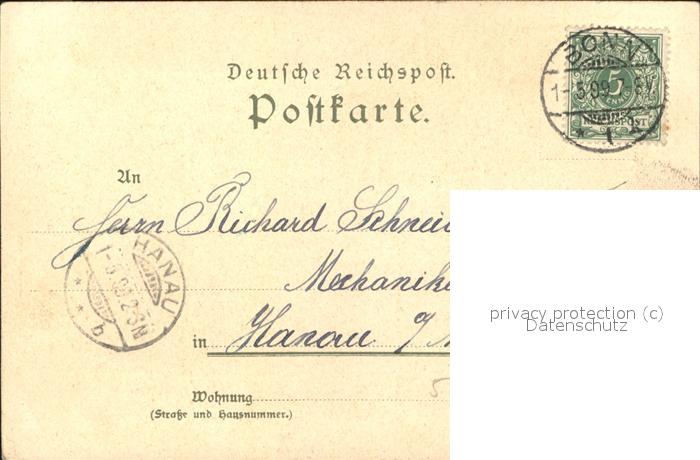 Deutsche Reichspost.
Postkarte.
BONN
1-5.99. 7-8V.
* 1 k
5
REICHSPOST
An
Herrn Richard Schneid
Mechanike
HANAU
1-5.99.2-3N
* * b
in Hanau a/M
Wohnung
(Straße und Hausnummer.)
5
privacy protection (c)
Datenschutz